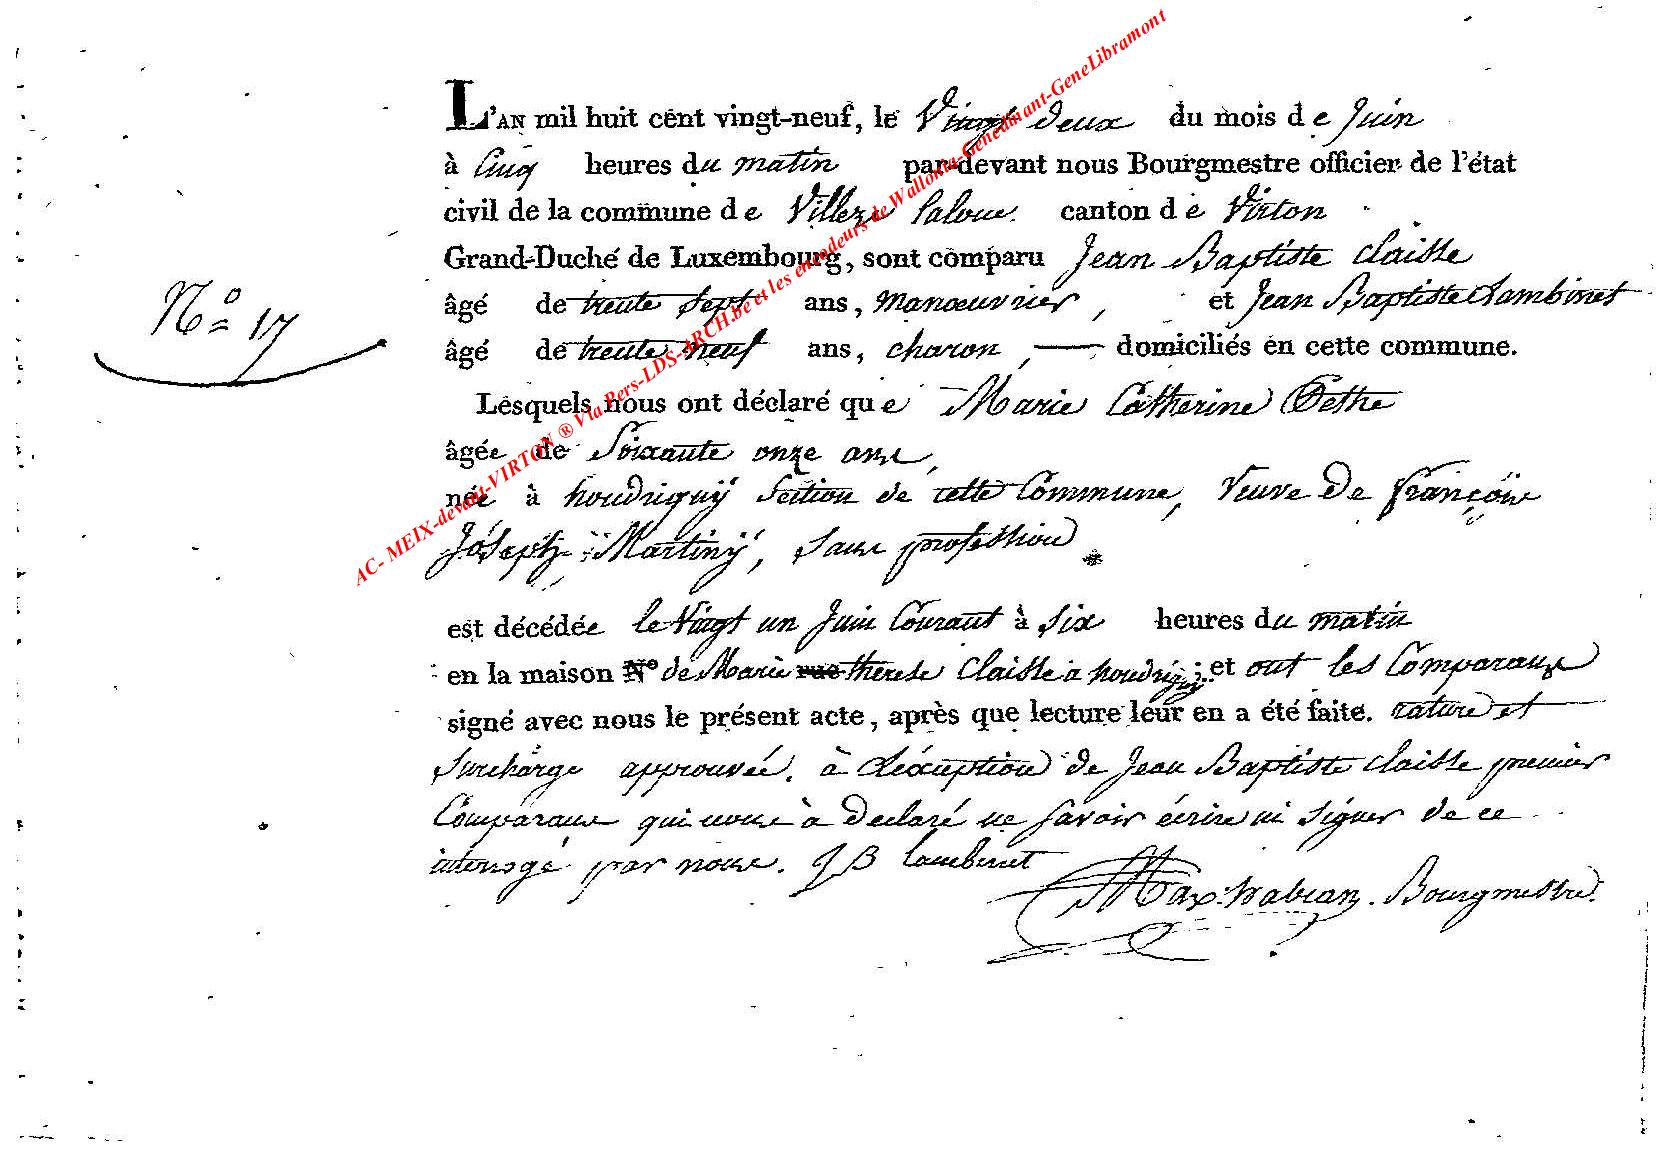 L'AN mil huit cent vingt-neuf, le Vingt deux du mois de Juin
à Cinq heures du matin par-devant nous Bourgmestre officier de l'état
civil de la commune de Villers laloue canton de Virton
Grand-Duché de Luxembourg, sont comparu Jean Baptiste Claisse
N° 17
âgé de trente sept ans, manœuvrier, et Jean Baptiste Lambinet
âgé de trente neuf ans, charon, domiciliés en cette commune.
Lesquels nous ont déclaré que Marie Catherine
âgée de Soixante onze ans,
née à houdriguÿ Section de cette Commune, Veuve de françois
Joseph Martinÿ, sans profession
est décédée le Vingt un Juin Courant à six heures du matin
en la maison N° de Marie rue therese Claisse à houdriguÿ; et ont les Comparans
signé avec nous le présent acte, après que lecture leur en a été faite. rature et
Surcharge approuvée. à l'éxception de Jean Baptiste Claisse premier
Comparans qui nous à declaré ne savoir écrire ni signer de ce
interrogé par nous. J B Lambinet
Bourgmestre.
AC- MEIX-devant-VIRTON ® Via Pers-LDS-ARCH.be et les encodeurs de Wallonia-Genedinant-GeneLibramont